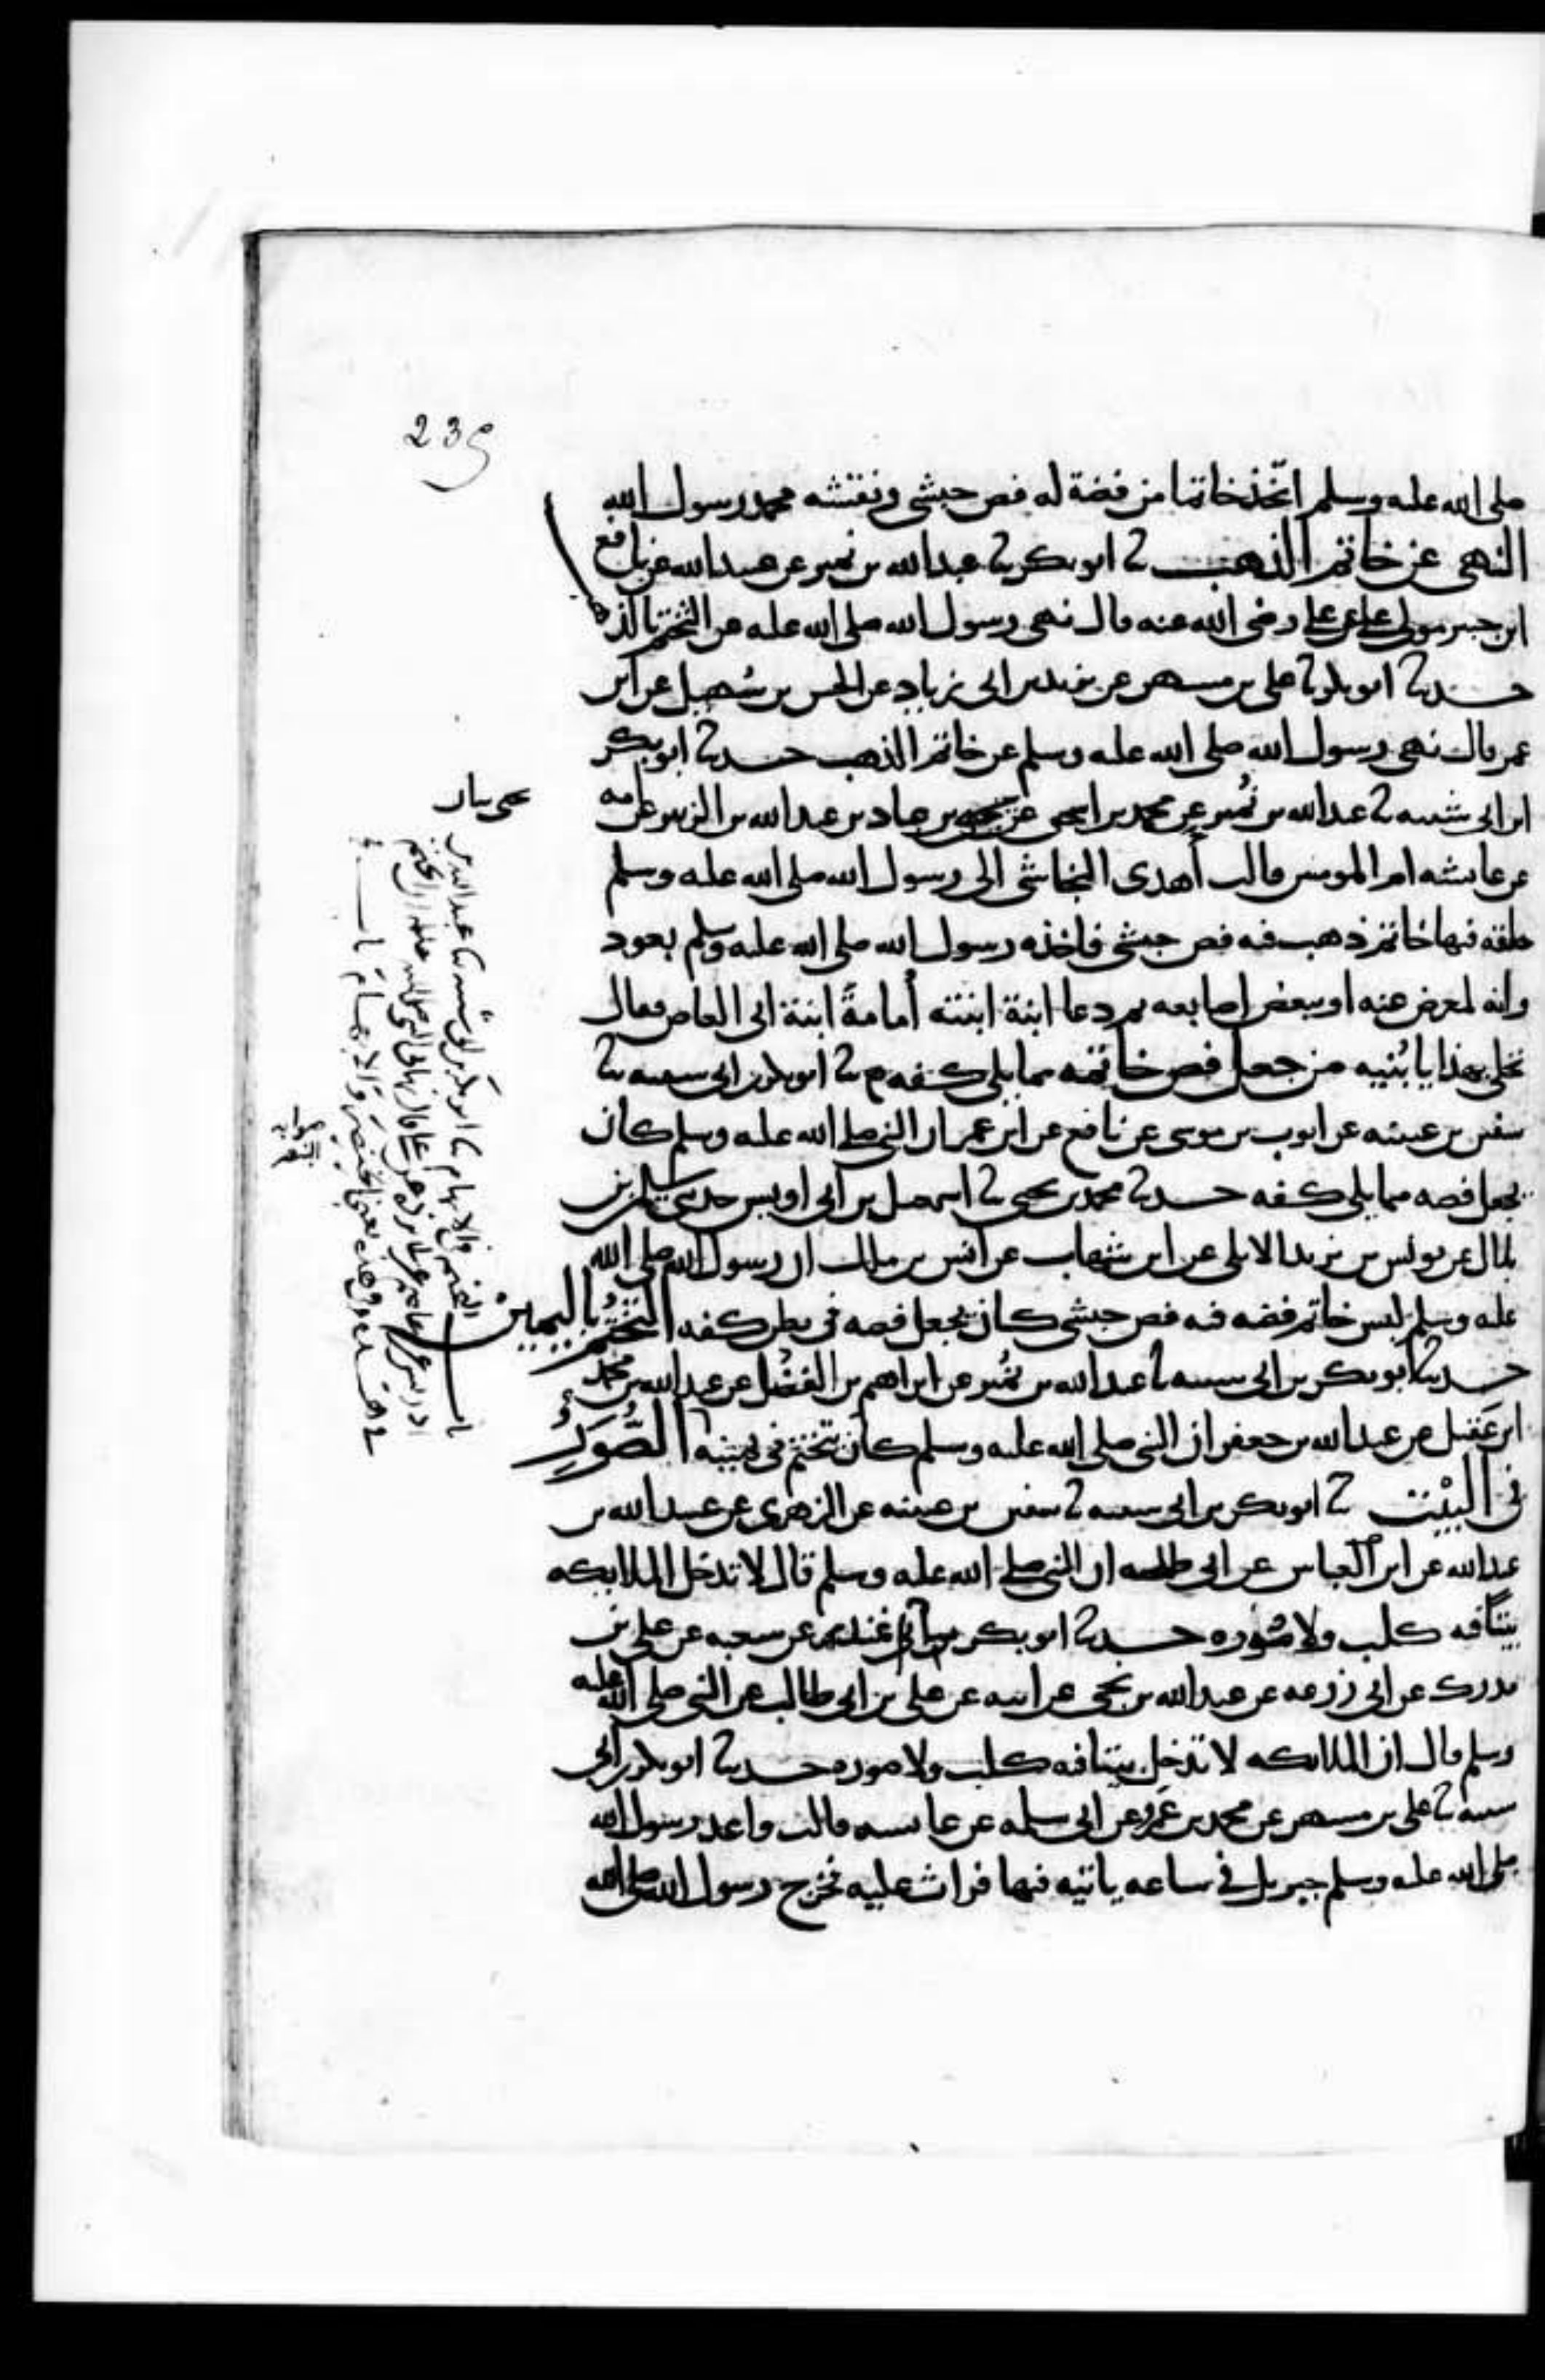 239
صلى الله عليه وسلم اتّخذ خاتما من فضة له فص حبشي ونقشه محمد رسول الله
النهي عن خاتم الذهب نا ابو بكر نا عبد الله بن نمير عن عبيد الله عن نافع
ابن جبير مولى علي عن علي رضي الله عنه قال نهى رسول الله صلى الله عليه عن التختم بالذهب
حدثنا ابو بكر نا علي بن مسهر عن يزيد بن ابي زياد عن الحسن بن سُهيل عن ابن
عمر قال نهى رسول الله صلى الله عليه وسلم عن خاتم الذهب حدثنا ابو بكر
ابن ابي شيبه نا عبد الله بن نُمير عن محمد بن اسحق عن يحيى بن عباد بن عبد الله بن الزبير عن ابيه
عن عائشه ام المومنين قالت أهدى النجاشي الى رسول الله صلى الله عليه وسلم
حلقه فيها خاتم ذهب فيه فص حبشي فاخذه رسول الله صلى الله عليه وسلم بعود
وانه لمعرض عنه او ببعض اصابعه ثم دعا ابنة ابنته أمامةَ ابنة ابي العاص فقال
تحلي بهذا يا بُنيه من جعل فص خاتمه مما يلي كفه نا ابو بكر بن ابي شيبه نا
سفين بن عيينه عن ايوب بن موسى عن نافع عن ابن عمر ان النبي صلى الله عليه وسلم كان
يجعل فصه مما يلي كفه حدثنا محمد بن يحيى نا اسمعيل بن ابي اويس حدثني سليمن بن
بلال عن يونس بن يزيد الايلي عن ابن شهاب عن انس بن مالك ان رسول الله صلى الله
عليه وسلم لبس خاتم فضه فيه فص حبشي كان يجعل فصه في بطن كفه التختّم باليمين
حدثنا ابو بكر بن ابي شيبه نا عبد الله بن نُمير عن ابراهيم بن الفضل عن عبد الله بن محمد
ابن عَقيل عن عبد الله بن جعفر ان النبي صلى الله عليه وسلم كان يتختّم في يمينه الصُّوَرُ
في البيْت نا ابو بكر بن ابي شيبه نا سفين بن عيينه عن الزهري عن عبيد الله بن
عبد الله عن ابن العباس عن ابي طلحه ان النبي صلى الله عليه وسلم قال لا تدخل الملايكه
بيتًا فيه كلب ولا صُوره حدثنا ابو بكر نا غندر عن شعبه عن علي بن
مدرك عن ابي زرعه عن عبد الله بن نجي عن ابيه عن علي بن ابي طالب عن النبي صلى الله عليه
وسلم قال ان الملائكه لا تدخل بيتا فيه كلب ولا صوره حدثنا ابو بكر بن ابي
شيبه نا علي بن مسهر عن محمد بن عَمرو عن ابي سلمه عن عائشه قالت واعد رسول الله
صلى الله عليه وسلم جبريل في ساعه ياتيه فيها فراث عليه فخرج رسول الله صلى الله
باب التختم في الابهام نا ابو بكر بن ابي شيبه نا عبد الله بن
ادريس عن عاصم عن ابي برده عن علي قال نهاني النبي صلى الله عليه ان اتختم
في هذه وفي هذه يعني الخنصر والابهام